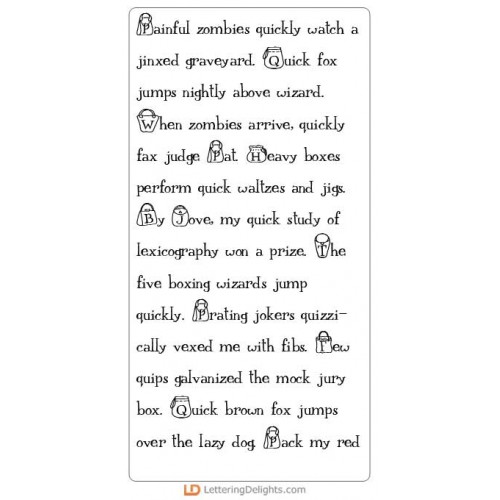 Painful zombies quickly watch a
jinxed graveyard. Quick fox
jumps nightly above wizard.
When zombies arrive, quickly
fax judge Pat. Heavy boxes
perform quick waltzes and jigs.
By Jove, my quick study of
lexicography won a prize. The
five boxing wizards jump
quickly. Prating jokers quizzi-
cally vexed me with fibs. Few
quips galvanized the mock jury
box. Quick brown fox jumps
over the lazy dog. Pack my red
LD LetteringDelights.com